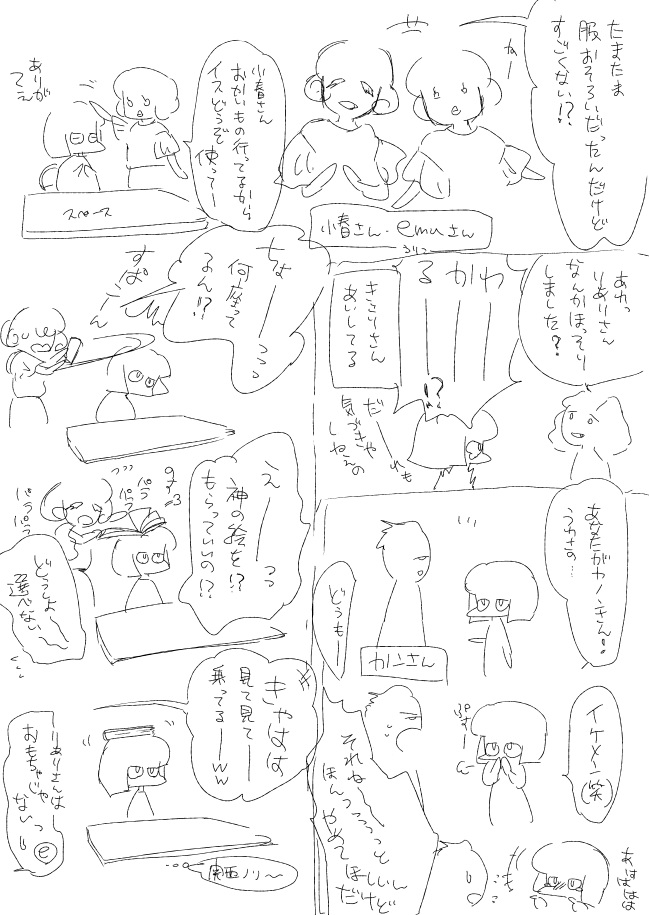 たまたま
服おそろいだったんだけど
すごくない!?
ねー
小春さん・emuさん
小春さん
おかいもの行ってるから
イスどうぞ
使ってー
ありが
てえ
スペース
あれっ
りありさん
なんかほっそり
しました?
かわ
るーーー
きさりさん
あいしてる
!?
だれも
気づきや
しねえの
あなたがカノンさん!
うわさの…
どうもー
カノンさん
イケメン(笑)
ぷすー
それねー
ほんっっっっと
やめて
ほしいん
だけど
あはははは
ちょーーっっ
何座って
るん!?
すぱーん
えーーっっ
神の絵を!?
もらっていいの!?
パラ
パラ
パラパラ
どうしよ〜
選べない〜
きゃはは
見て見てー
乗ってるーww
りありさんは
おもちゃじゃ
ないっ
e
関西ノリ〜